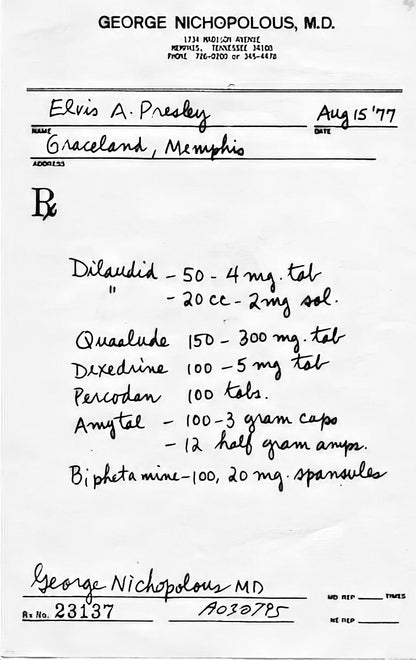 GEORGE NICHOPOLOUS, M.D.
1734 MADISON AVENUE
MEMPHIS, TENNESSEE 34103
PHONE 726-0200 or 345-4478
Elvis A. Presley Aug 15 '77
NAME DATE
Graceland, Memphis
ADDRESS
Rx
Dilaudid - 50 - 4 mg. tab
" - 20 cc - 2mg sol.
Quaalude 150 - 300 mg. tab
Dexedrine 100 - 5 mg tab
Percodan 100 tabs.
Amytal - 100 - 3 gram caps
- 12 half gram amps.
Biphetamine - 100, 20 mg. spansules
George Nichopolous MD
MD REP ____ TIMES
Rx No. 23137 A030795
NE REP ____